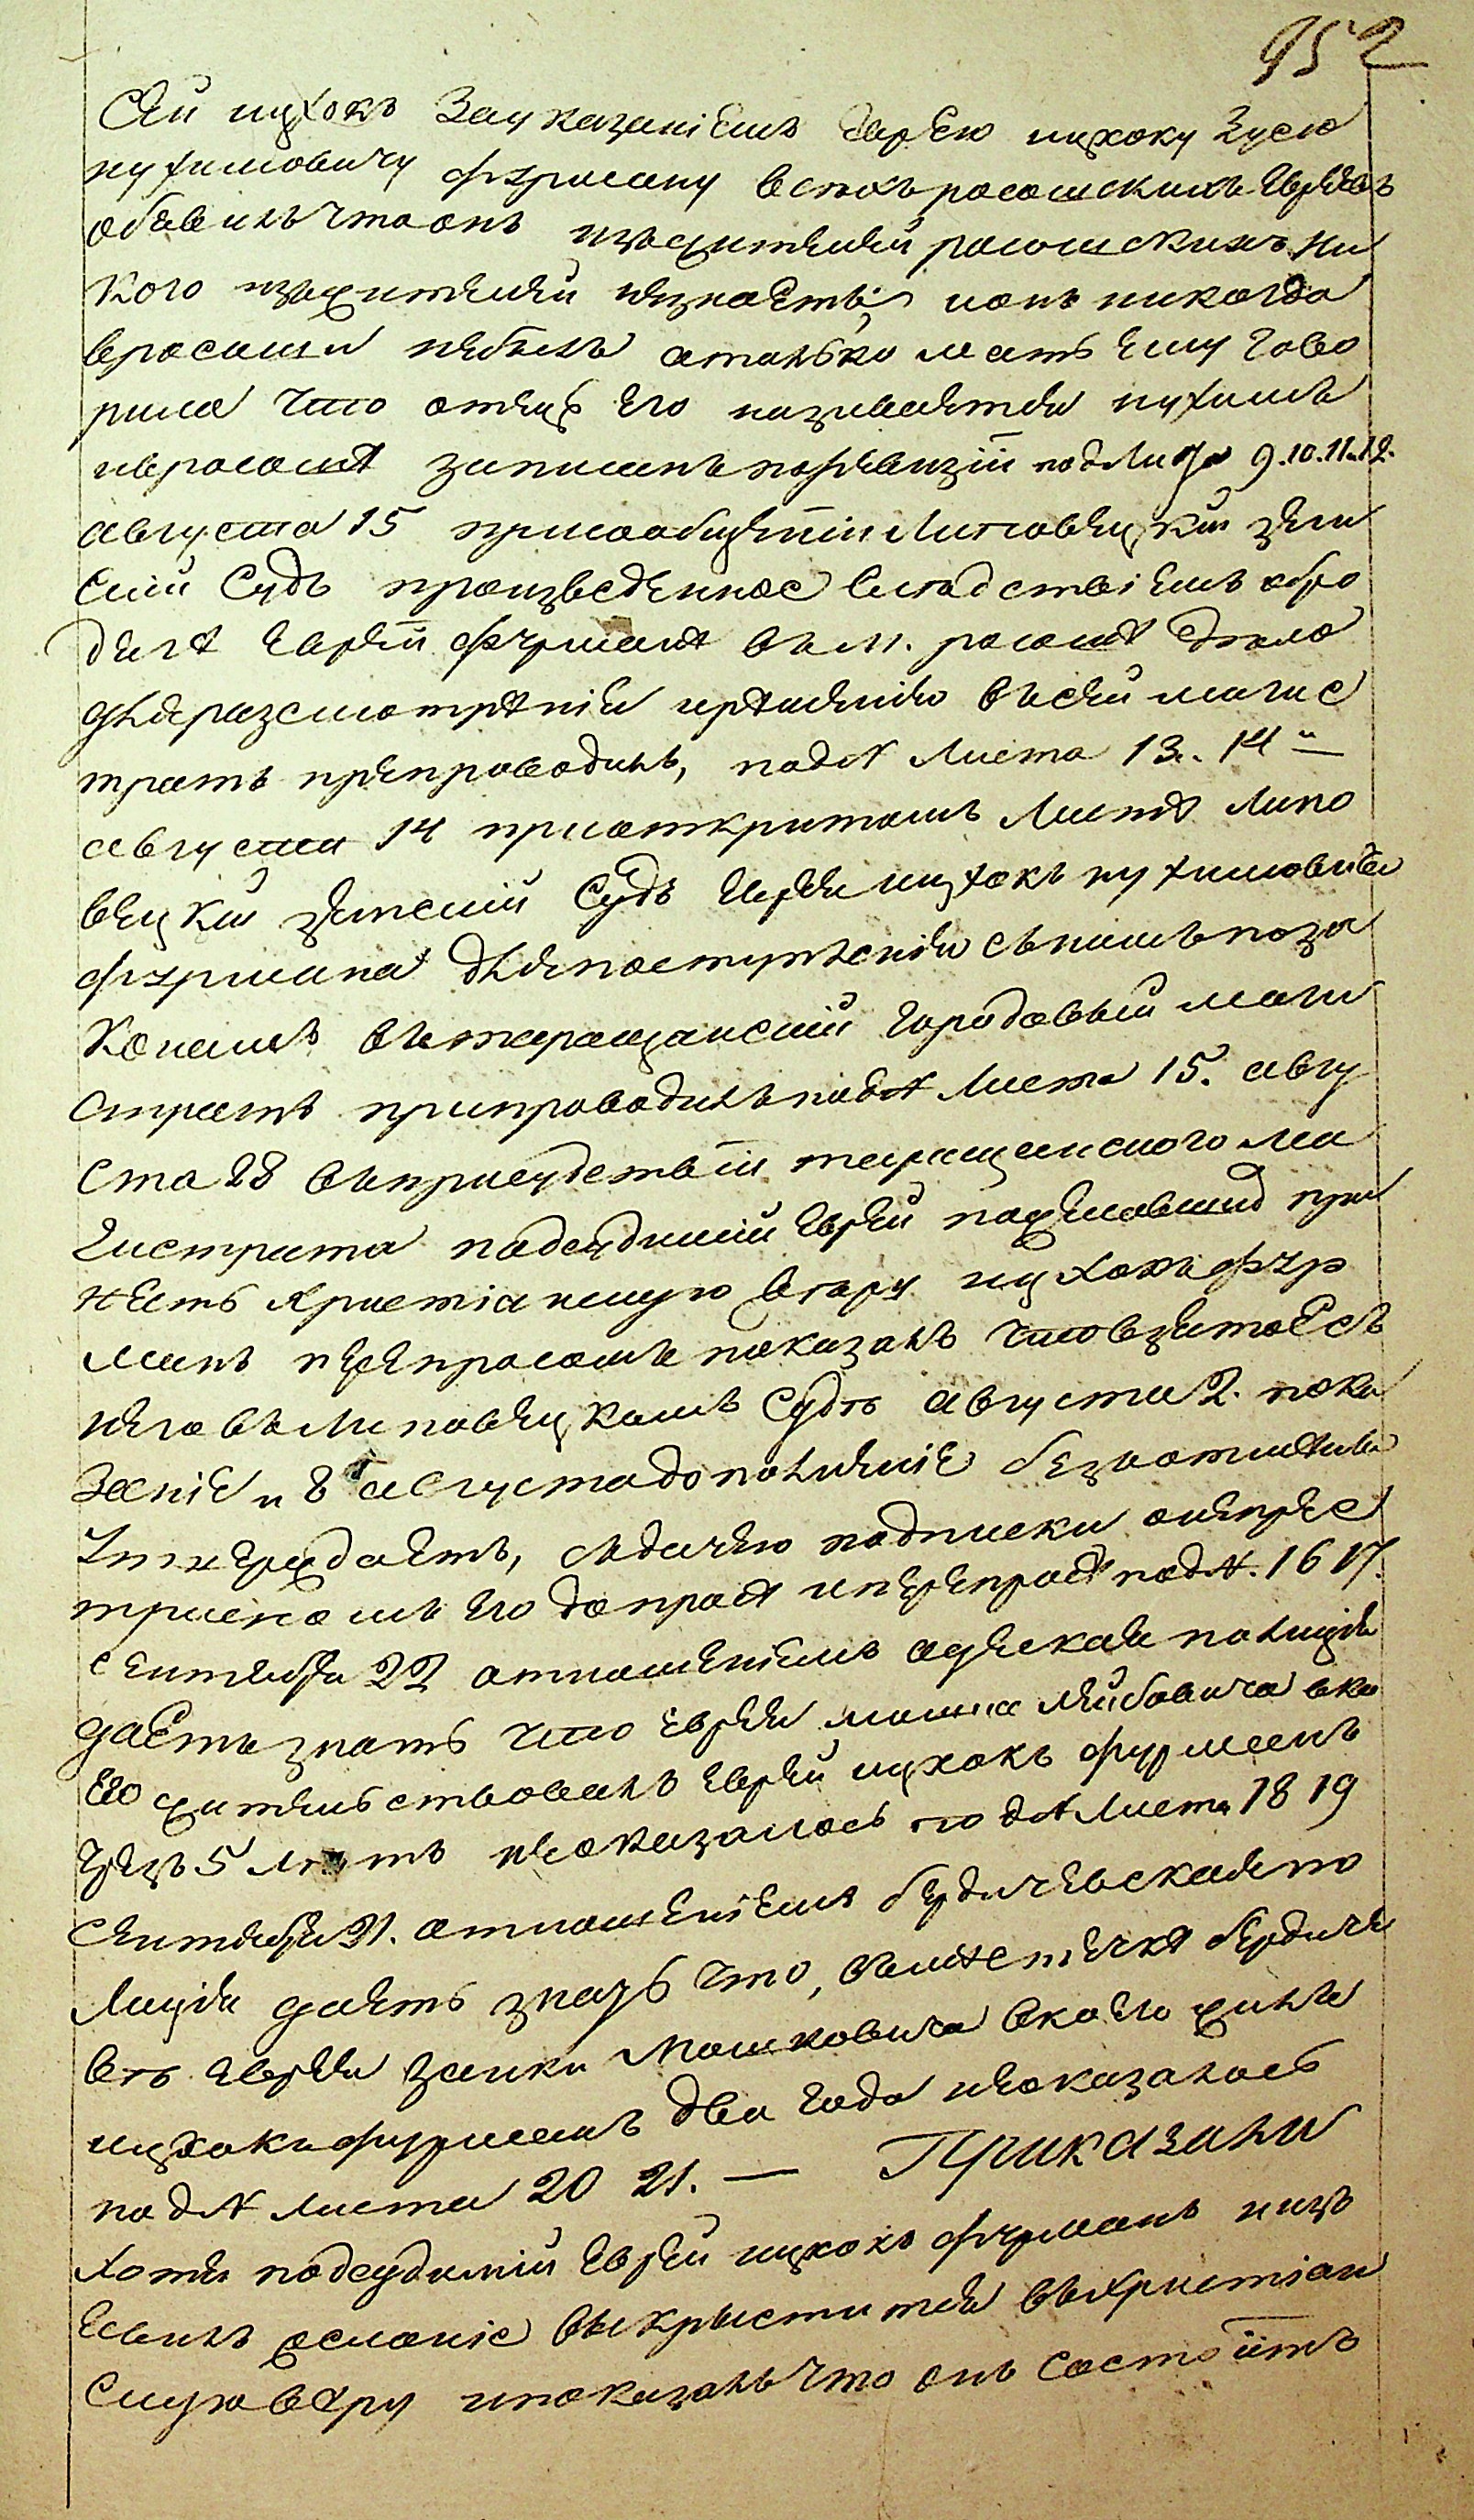 952
Сей ицхокъ Зауказаніемъ еврею ицхоку Зусю
нухимовичу фурману встохъ росошскихъ Евреевъ
обявилъ чтоонъ изжителей росошскихъ ни
кого изжителей незнаетъ ионъ никогда
вросоши небылъ атолько мать ему гово
рила что отецъ его называется нухимъ
ивросоше записанъ поревизіи подлиста 9.10.11.и12.
августа 15 присообщеніи Липовецкій зем
скій Судъ произведенное Следствіемъ обро
диге Еврей фурмане въ м. росоше Дело
дляразсмотренія ирешенія въсей магис
тратъ препроводилъ, под№ Листа 13. 14
августа 14 приоткритомъ Листе Липо
вецкій земскій Судъ Еврея ицхокъ нухимовича
фурмана дляпоступленія снимъ поза
конамъ въ таращанскій городовый маги
стратъ припроводилъ под№ Листа 15. авгу
ста 28 въприсудствіи таращанского ма
гистрата подсудимій Еврей пожелавшій при
нять христіанскую веру ицхокъ фур
манъ перепросомъ показалъ чтовзятоесъ
него въ Липовецкомъ Судѣ августа 2. пока
заніе и 8 августадополненіе безъотменно
утверждаетъ, съдачею подписки
присемъ его допросе иперепросе под№. 16 17.
Сентября 22 отношеніемъ одеская полиція
даетъ знать что Еврея мошка лейбовича вко
его жительствовалъ Еврей ицхокъ фурманъ
чрезъ 5 летъ неоказалось под№ Листа 18 19
Сентября 21. отношеніемъ бердичевская по
лиція даетъ знать что, въместечке бердиче
ве Еврея Занки Мошковича вкоего жилъ
ицхокъ фурманъ два года неоказалось
под№ листа 20 21. — Приказали
Хотя подсудимій Еврей ицхокъ фурманъ ииз
евилъ желаніе выкрыститися въхристіан
скую веру ипоказалъ что онъ состоитъ